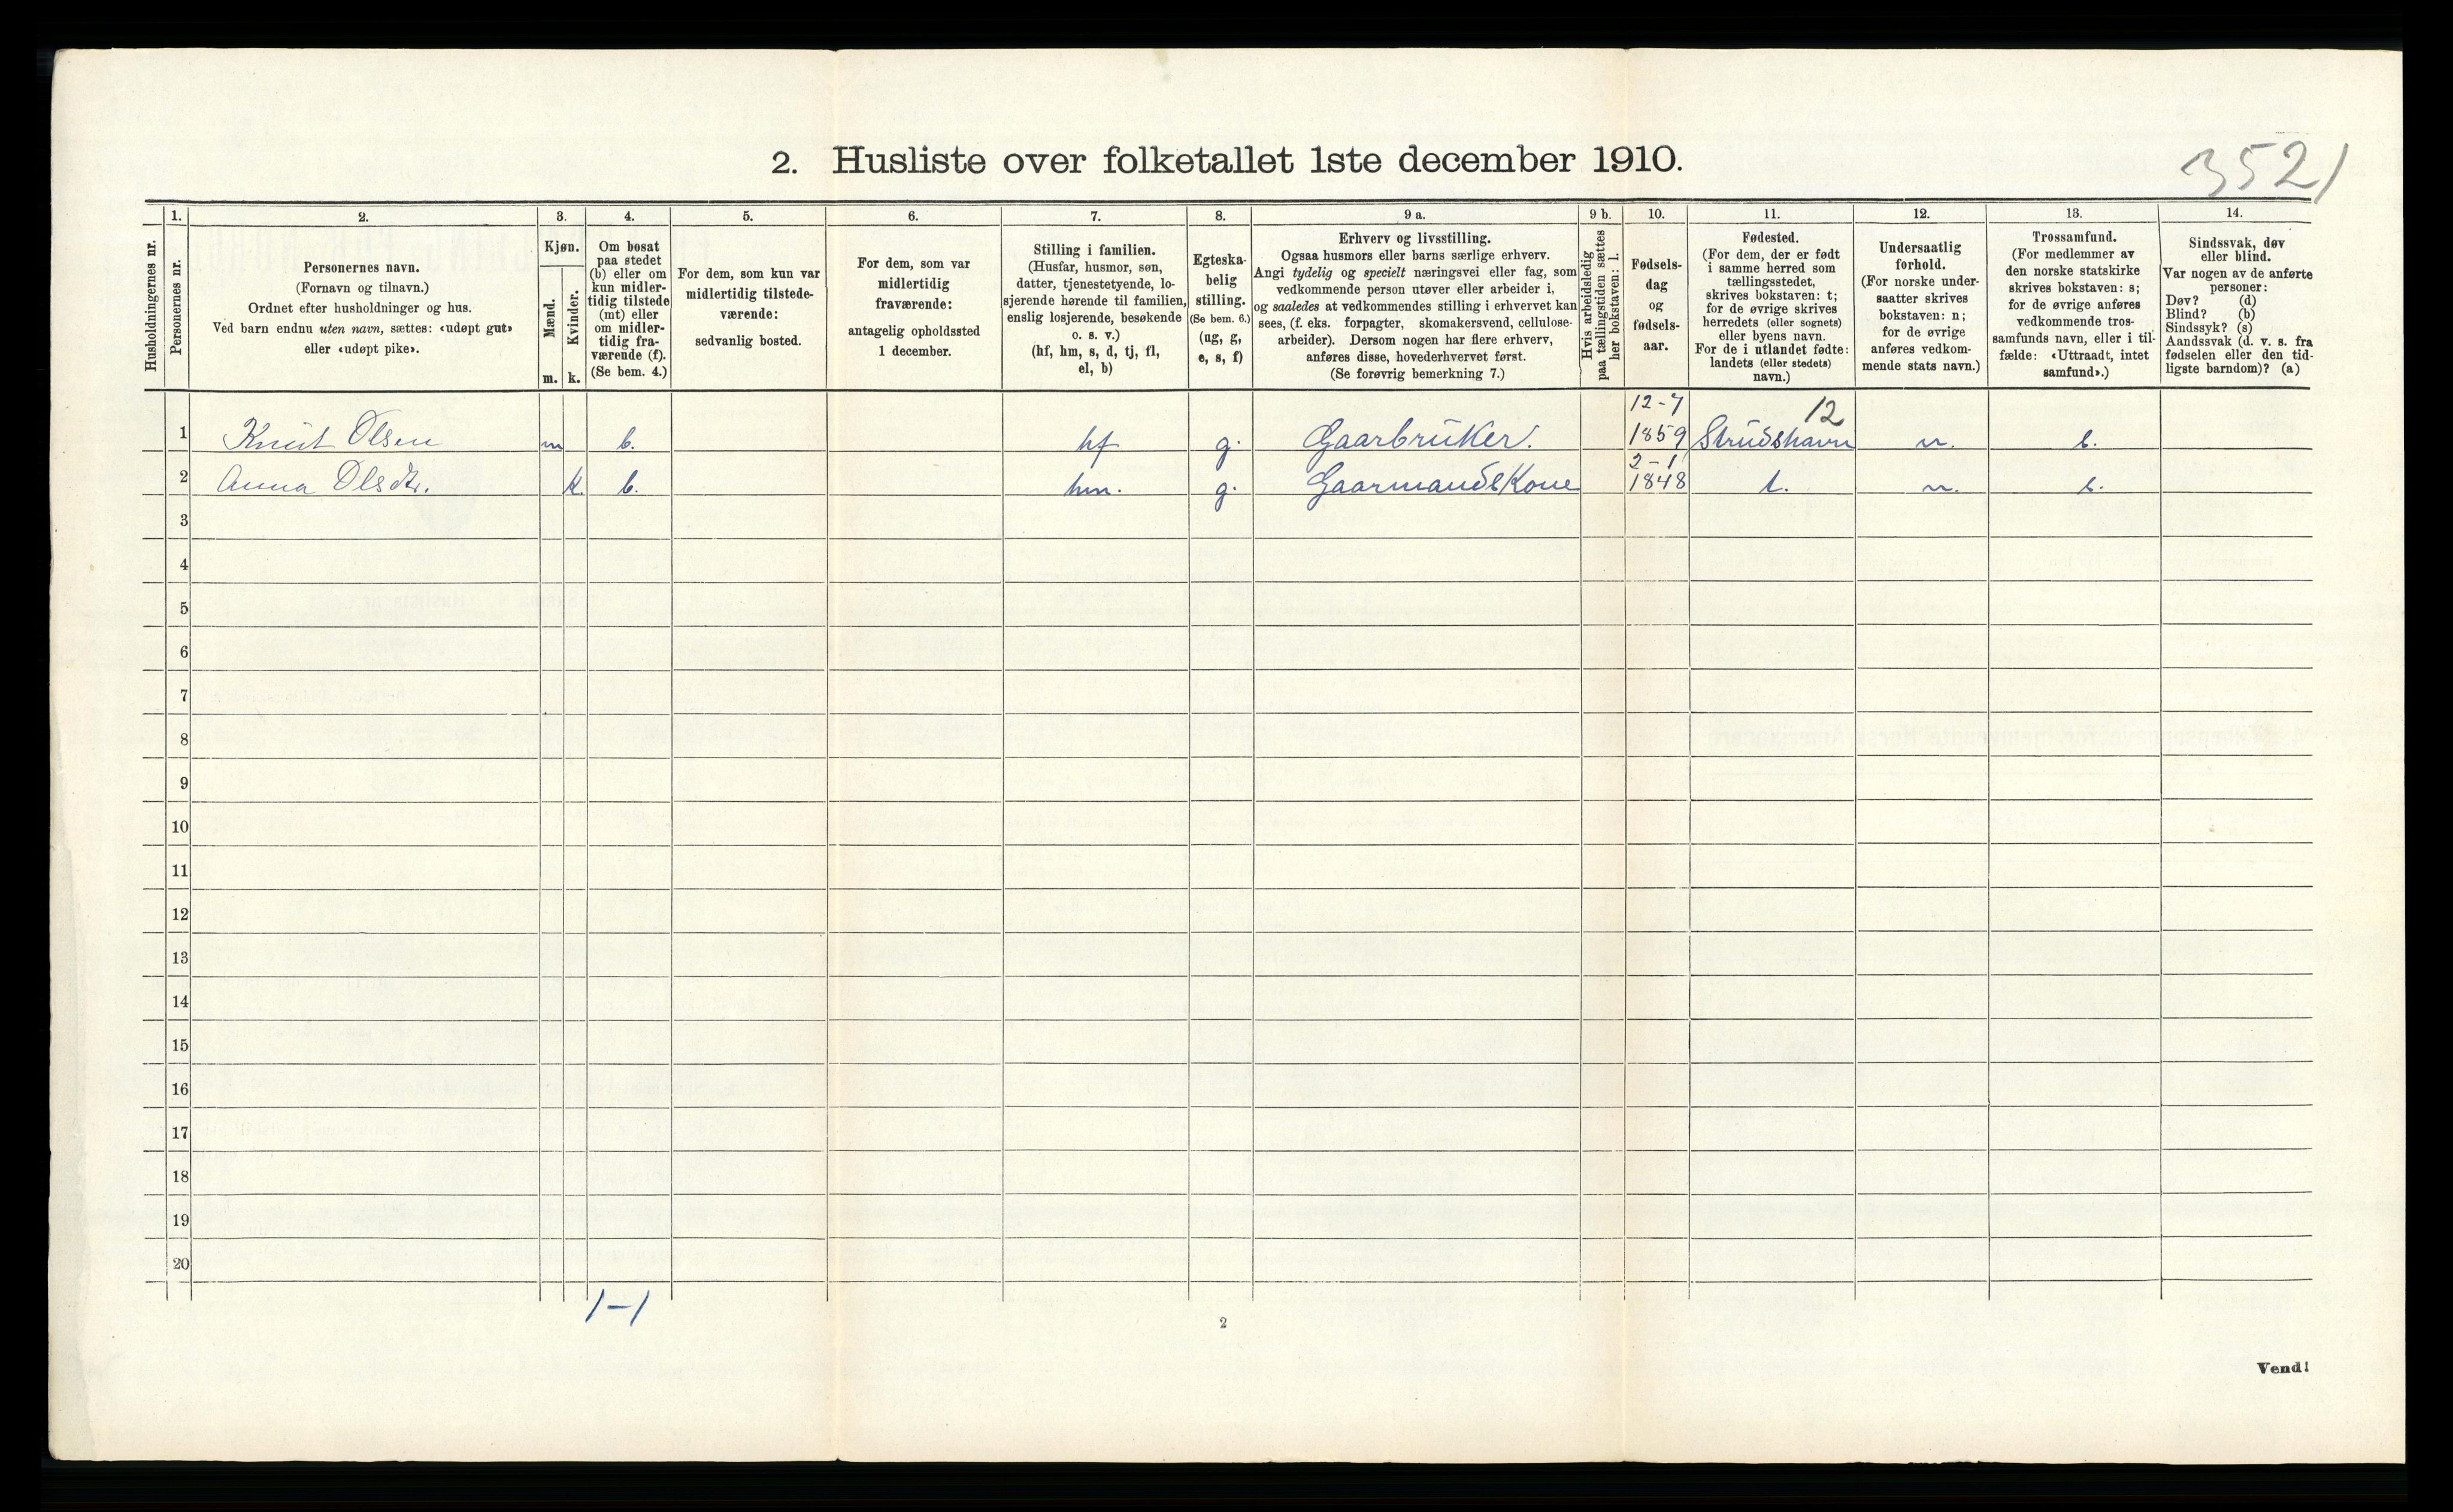 2. Husliste over folketallet 1ste december 1910.
3521
Husholdningernes nr.
1.
Personernes nr.
2.
Personernes navn.
(Fornavn og tilnavn.)
Ordnet efter husholdninger og hus.
Ved barn endnu uten navn, sættes: «udøpt gut»
eller «udøpt pike».
3.
Kjøn.
Mænd.
Kvinder.
m. k.
4.
Om bosat
paa stedet
(b) eller om
kun midler-
tidig tilstede
(mt) eller
om midler-
tidig fra-
værende (f).
(Se bem. 4.)
5.
For dem, som kun var
midlertidig tilstede-
værende:
sedvanlig bosted.
6.
For dem, som var
midlertidig
fraværende:
antagelig opholdssted
1 december.
7.
Stilling i familien.
(Husfar, husmor, søn,
datter, tjenestetyende, lo-
sjerende hørende til familien,
enslig losjerende, besøkende
o. s. v.)
(hf, hm, s, d, tj, fl,
el, b)
8.
Egteska-
belig
stilling.
(Se bem. 6.)
(ug, g,
e, s, f)
9 a.
Erhverv og livsstilling.
Ogsaa husmors eller barns særlige erhverv.
Angi tydelig og specielt næringsvei eller fag, som
vedkommende person utøver eller arbeider i,
og saaledes at vedkommendes stilling i erhvervet kan
sees, (f. eks. forpagter, skomakersvend, cellulose-
arbeider). Dersom nogen har flere erhverv,
anføres disse, hovederhvervet først.
(Se forøvrig bemerkning 7.)
9 b.
Hvis arbeidsledig
paa tællingstiden sættes
her bokstaven: l.
10.
Fødsels-
dag
og
fødsels-
aar.
11.
Fødested.
(For dem, der er født
i samme herred som
tællingsstedet,
skrives bokstaven: t;
for de øvrige skrives
herredets (eller sognets)
eller byens navn.
For de i utlandet fødte:
landets (eller stedets)
navn.)
12.
Undersaatlig
forhold.
(For norske under-
saatter skrives
bokstaven: n;
for de øvrige
anføres vedkom-
mende stats navn.)
13.
Trossamfund.
(For medlemmer av
den norske statskirke
skrives bokstaven: s;
for de øvrige anføres
vedkommende tros-
samfunds navn, eller i til-
fælde: «Uttraadt, intet
samfund».)
14.
Sindssvak, døv
eller blind.
Var nogen av de anførte
personer:
Døv? (d)
Blind? (b)
Sindssyk? (s)
Aandssvak (d. v. s. fra
fødselen eller den tid-
ligste barndom)? (a)
12-7 12
1 Knut Olsen m b. hf g. Gaarbruker. 1859 Strudshavn n. s.
2-1
2 Anna Olsdtr. k. b. hm. g. GaarmandsKone 1848 t. n. s.
3
4
5
6
7
8
9
10
11
12
13
14
15
16
17
18
19
20
1-1
2
Vend!